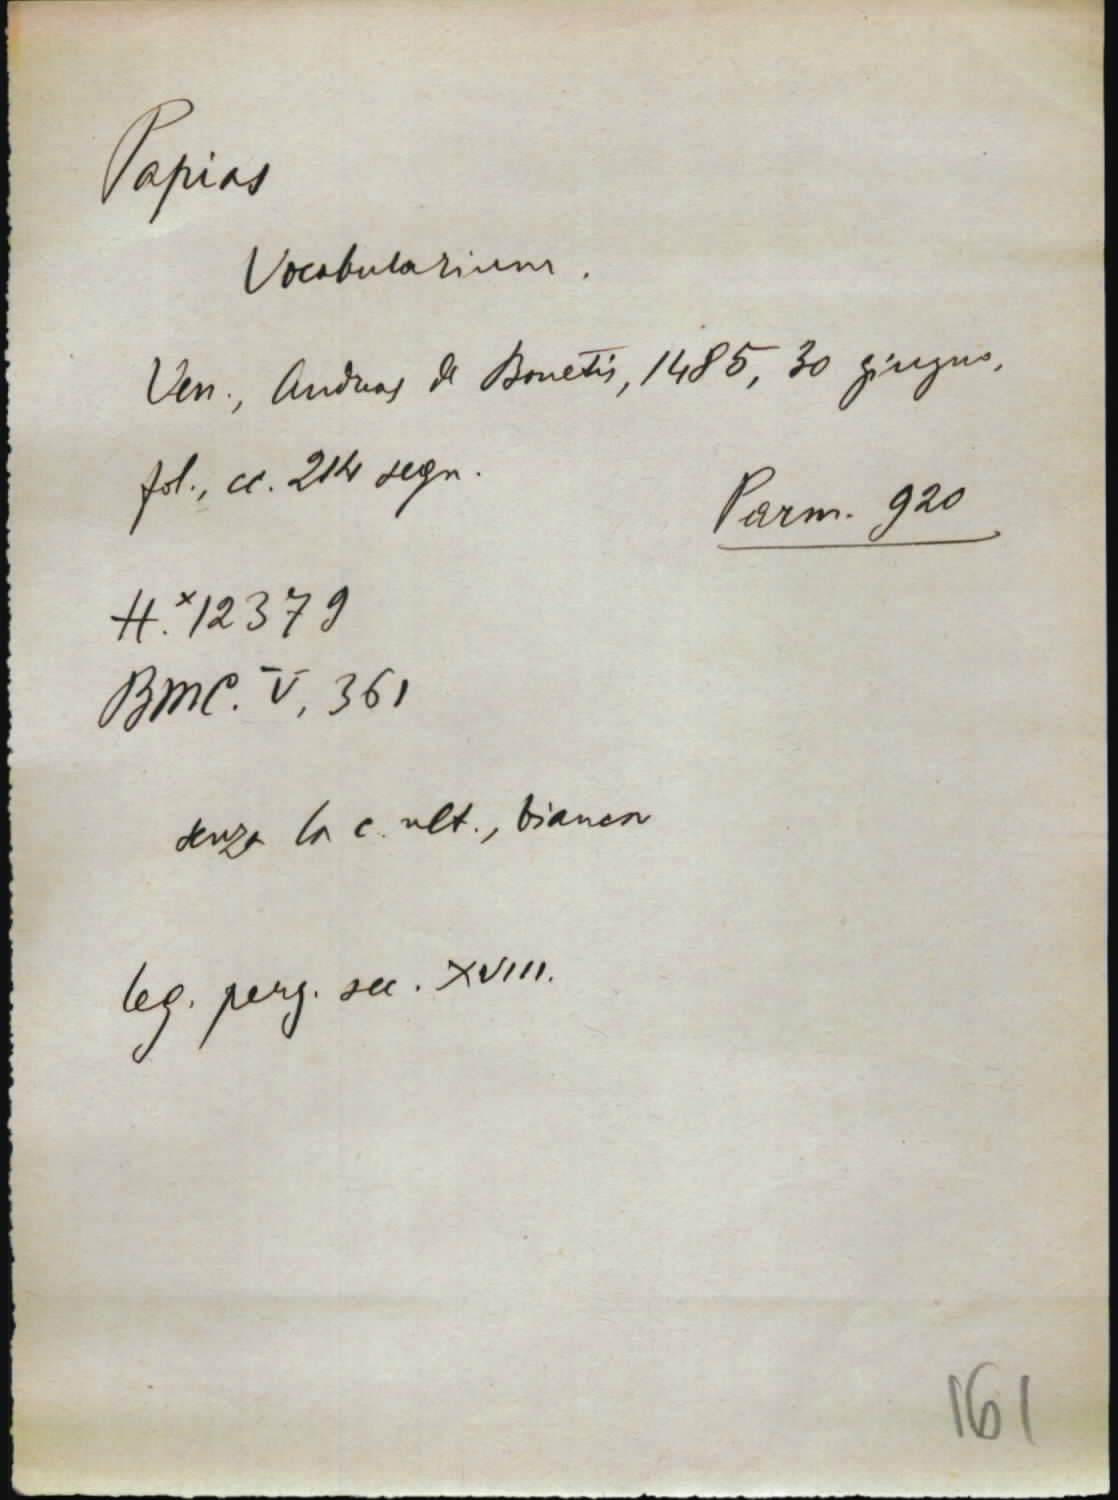 Papias
Vocabularium.
Ven., Andreas de Bonetis, 1485, 30 giugno,
fol., cc. 214 segn.
Parm. 920
H.ˣ12379
BMC. V, 361
senza la c. ult., bianca
leg. perg. sec. XVIII.
161